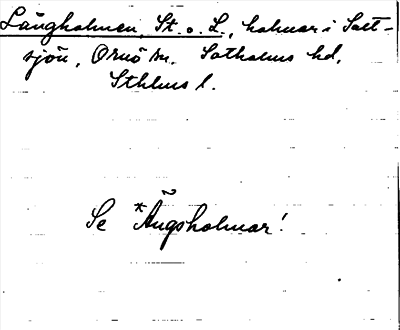 Långholmen, St. o. L., holmar i Salt-
sjön, Ornö sn. Sotholms hd,
Sthlms l.
Se *Ängsholmar!